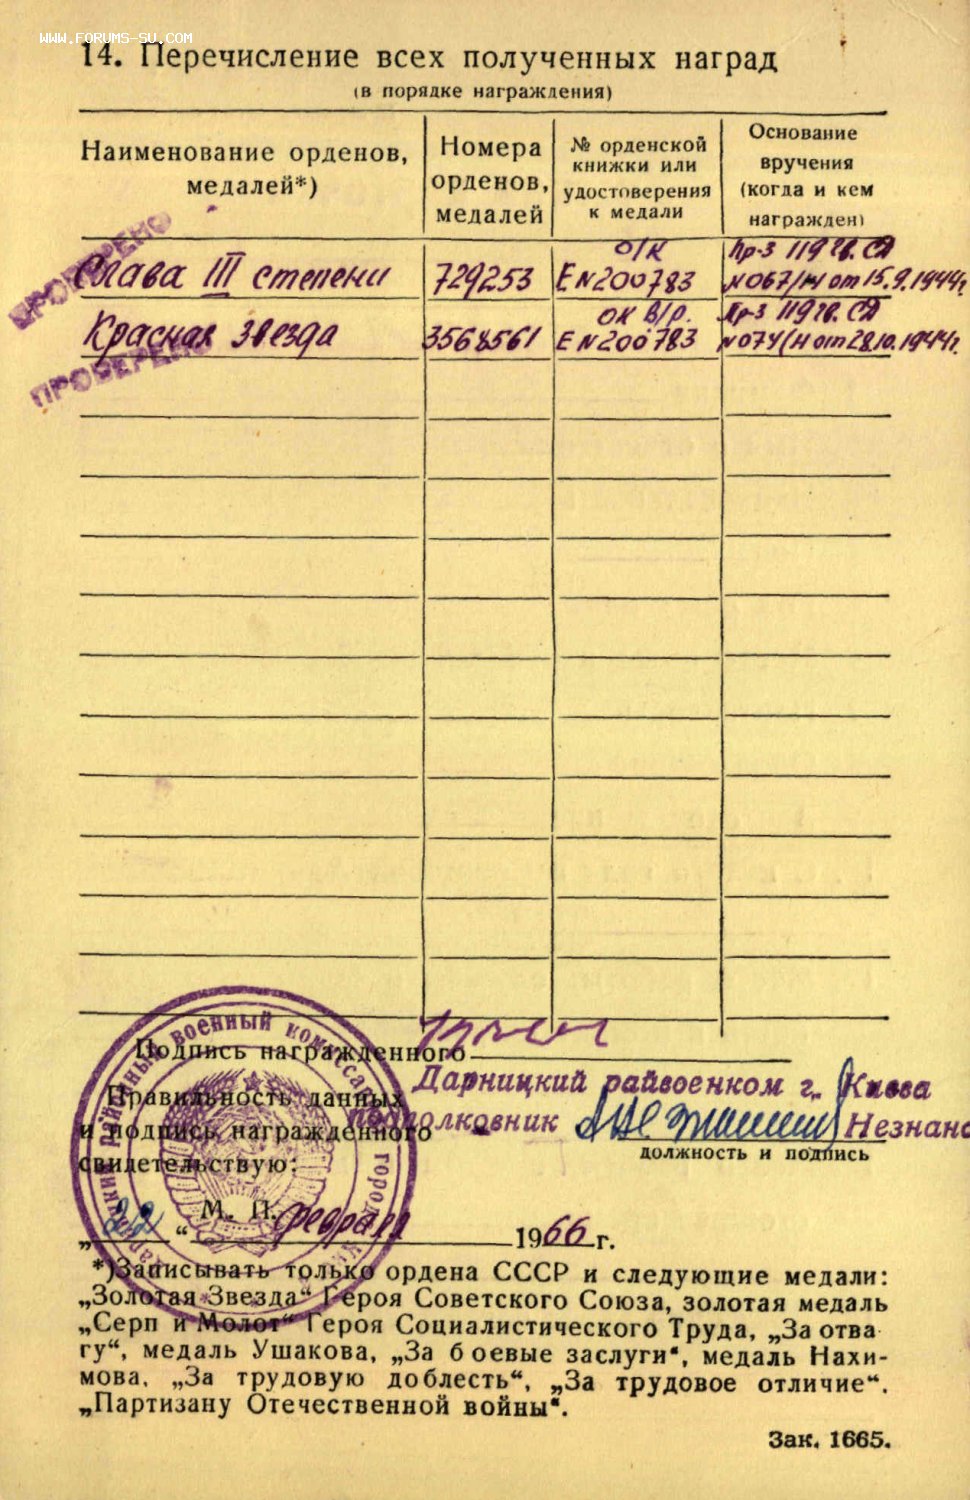 WWW.FORUMS-SU.COM
14. Перечисление всех полученных наград
(в порядке награждения)
Наименование орденов, медалей*)
Номера орденов, медалей
№ орденской книжки или удостоверения к медали
Основание вручения (когда и кем награжден)
ПРОВЕРЕНО
Слава III степени 729253 О/К Е №200783 Пр-з 119 СД №067/Н от 15.9.1944г.
Красная звезда 3568561 ОК В/р. Е №200783 Пр-з 119 СД №074/Н от 28.10.1944г.
ПРОВЕРЕНО
Подпись награжденного
Дарницкий райвоенком г. Киева
Правильность данных
подполковник Незнан
и подпись награжденного
должность и подпись
свидетельствую:
районный военный комиссар город
М. П.
„22“ февраля 1966 г.
*)Записывать только ордена СССР и следующие медали:
„Золотая Звезда“ Героя Советского Союза, золотая медаль
„Серп и Молот“ Героя Социалистического Труда, „За отва
гу“, медаль Ушакова, „За боевые заслуги“, медаль Нахи-
мова, „За трудовую доблесть“, „За трудовое отличие“.
„Партизану Отечественной войны“.
Зак. 1665.